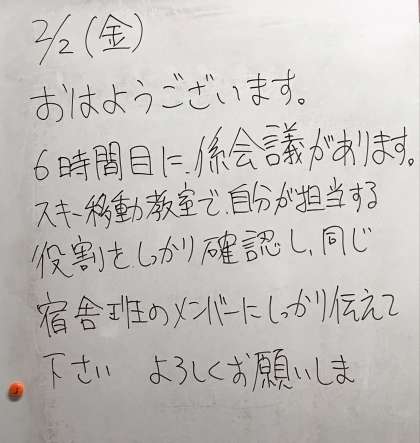 2/2(金)
おはようございます。
6時間目に、係会議があります。
スキー移動教室で、自分が担当する
役割を、しっかり確認し、同じ
宿舎班のメンバーにしっかり伝えて
下さい よろしくお願いしま